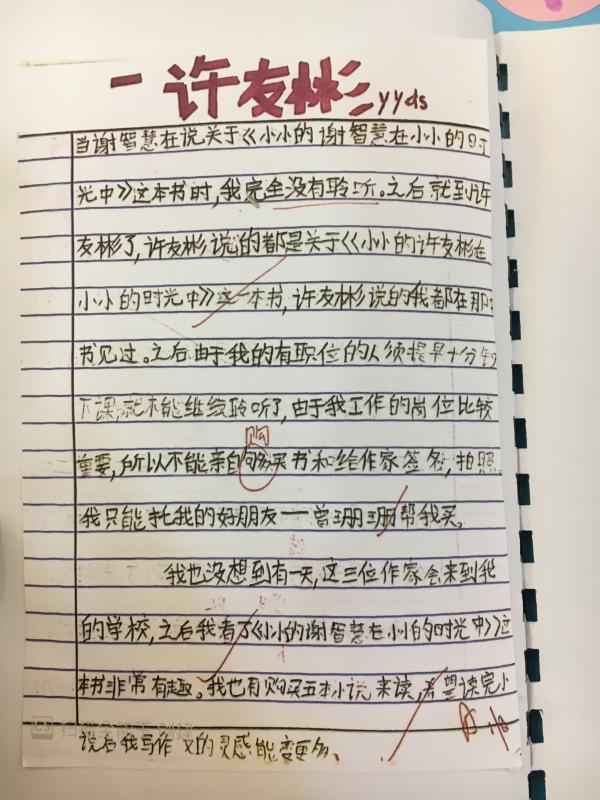 一许友彬yyds
当谢智慧在说关于《小小的谢智慧在小小的时
光中》这本书时,我完全没有聆听。之后就到许
友彬了,许友彬说的都是关于《小小的许友彬在
小小的时光中》这一本书,许友彬说的我都在那
书见过。之后由于我的有职位的人须提早十分钟
下课,就不能继续聆听了,由于我工作的岗位比较
购
重要,所以不能亲自够买书和给作家签名,拍照。
我只能托我的好朋友——曾珊珊帮我买。
我也没想到有一天,这三位作家会来到我
的学校,之后我看了《小小的谢智慧在小小的时光中》这
本书非常有趣。我也有购买五本小说来读,希望读完小
说后我写作文的灵感能变更多、